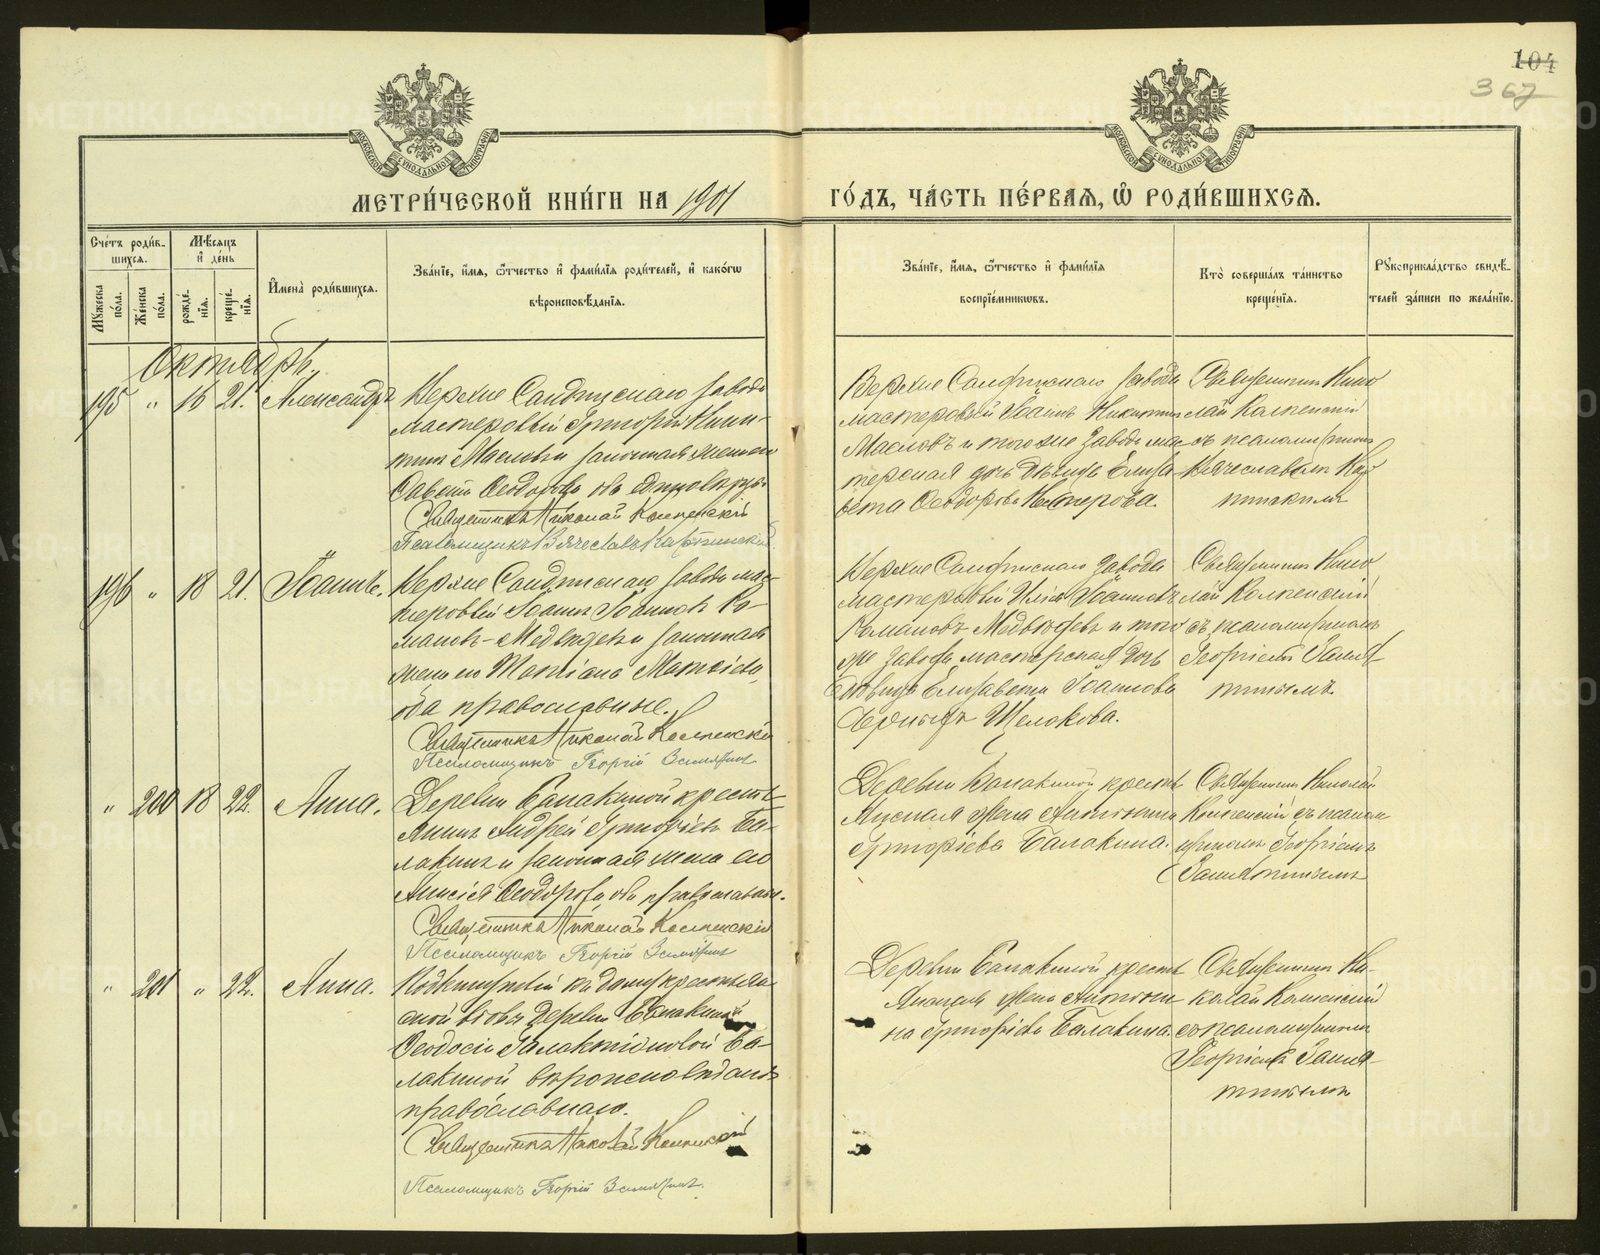 104
367
МОСКОВСКОЙ СѴНОДАЛЬНОЙ ТИПОГРАФІИ
МОСКОВСКОЙ СѴНОДАЛЬНОЙ ТИПОГРАФІИ
МЕТРИ́ЧЕСКОЙ КНИ́ГИ НА 1901 ГО́ДЪ, ЧА́СТЬ ПЕ́РВАѦ, Ѡ РОДИ́ВШИХСѦ.
Сче́тъ роди́в-
шихсѧ.
Мꙋжеска по́ла.
Же́нска по́ла.
Мѣ́сѧцъ
и҆ де́нь
рожде́-
нїѧ.
креще́-
нїѧ.
И҆мена̀ роди́вшихсѧ.
Зва́нїе, и҆́мѧ, ѻ҆́тчество и҆ фами́лїѧ роди́телей, и҆ како́гѡ
вѣроисповѣ́данїѧ.
Зва́нїе, и҆́мѧ, ѻ҆́тчество и҆ фами́лїѧ
воспрїе́мникѡвъ.
Кто̀ соверша́лъ та́инство
креще́нїѧ.
Рꙋкоприкла́дство свидѣ́-
телей за́писи по жела́нїю.
Октябрь.
195 " 16 21. Александръ
Верхне Салдинскаго завода
мастеровый Григорій Ники-
тинъ Масловъ и законная жена его
Ѳеодорова, оба единовѣрцы
Священникъ Николай Колпенскій
Псаломщикъ Вячеславъ
Верхне Салдинскаго завода
мастеровой Іоаннъ Никитинъ
Масловъ и того же завода мас-
терская дочь дѣвица Елиза-
вета Ѳеодорова Нестерова.
Священникъ Нико-
лай Колпенскій
съ псаломщикомъ
Вячеславомъ
196 " 18 21. Іоаннъ.
Верхне Салдинскаго завода мас-
теровый Іоаннъ Іоанновъ Ро-
мановъ-Медвѣдевъ и законная
жена его
оба православные.
Священникъ Николай Колпенскій
Псаломщикъ Георгій Замятинъ
Верхне Салдинскаго завода
мастеровой Илія Іоанновъ
Романовъ Медвѣдевъ и того
же завода мастерская дочь
дѣвица Елизавета Іоаннова
Щелокова.
Священникъ Нико-
лай Колпенскій
съ псаломщикомъ
Георгіемъ Замя-
тинымъ.
" 200 18 22. Анна.
Деревни Балакиной кресть-
янинъ Андрей Григорьевъ Ба-
лакинъ и законная жена его
Анисія Ѳеодорова, оба православные.
Священникъ Николай Колпенскій
Псаломщикъ Георгій Замятинъ
Деревни Балакиной кресть-
янская жена Антонина
Григоріева Балакина.
Священникъ Николай
Колпенскій съ псалом-
щикомъ Георгіемъ
Замятинымъ
" 201 " 22. Анна.
Подкинутый къ дому крестьян-
ской вдовы деревни Балакиной
Ѳеодосіи Галактіоновой Ба-
лакиной вѣроисповѣданія
православнаго.
Священникъ Николай Колпенскій
Псаломщикъ Георгій Замятинъ.
Деревни Балакиной кресть-
янская жена Антони-
на Григоріева Балакина.
Священникъ Ни-
колай Колпенскій
съ псаломщикомъ
Георгіемъ Замя-
тинымъ
METRIKI.GASO-URAL.RU